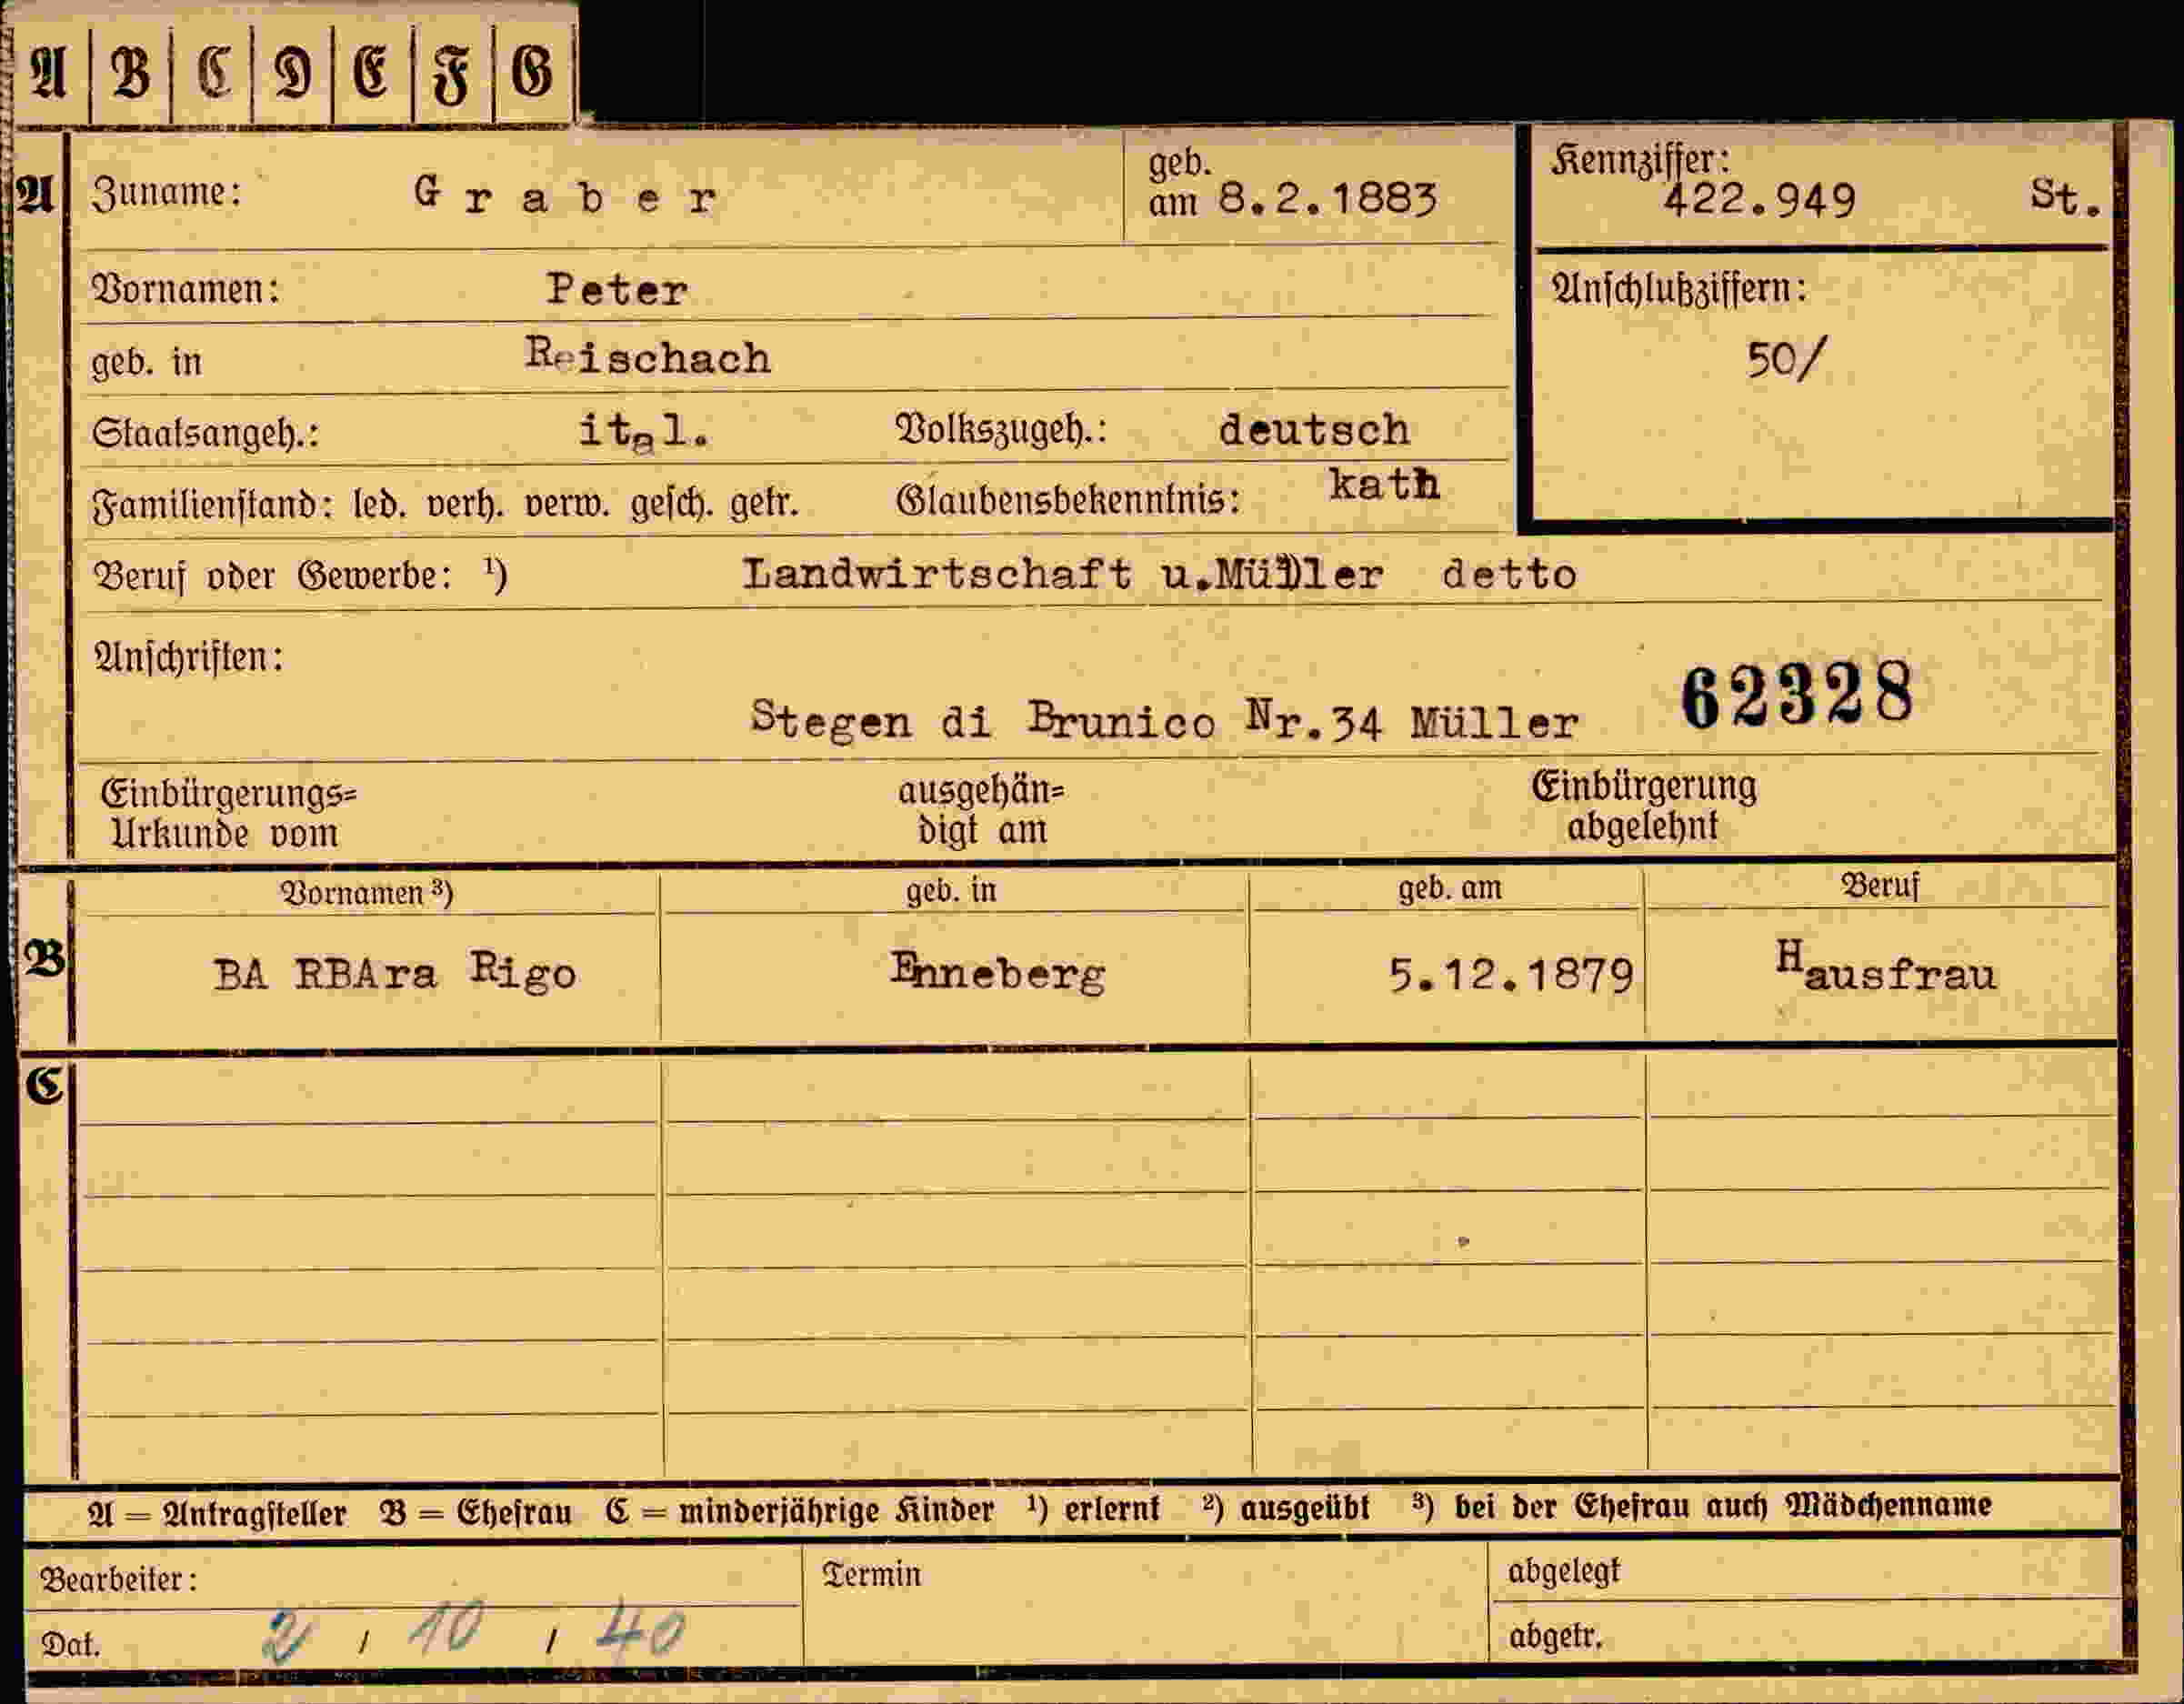 A B C D E F G
A Zuname: Graber geb. am 8.2.1883 Kennziffer: 422.949 St.
Vornamen: Peter Anschlußziffern:
geb. in Reischach 50/
Staatsangeh.: ital. Volkszugeh.: deutsch
Familienstand: led. verh. verw. gesch. getr. Glaubensbekenntnis: kath
Beruf oder Gewerbe: ¹) Landwirtschaft u.Müller detto
Anschriften:
Stegen di Brunico Nr.34 Müller 62328
Einbürgerungs= ausgehän= Einbürgerung
Urkunde vom digt am abgelehnt
Vornamen ³) geb. in geb. am Beruf
B BA RBAra Rigo Enneberg 5.12.1879 Hausfrau
C
A = Antragsteller B = Ehefrau C = minderjährige Kinder ¹) erlernt ²) ausgeübt ³) bei der Ehefrau auch Mädchenname
Bearbeiter: Termin abgelegt
Dat. 2 / 10 / 40 abgetr.